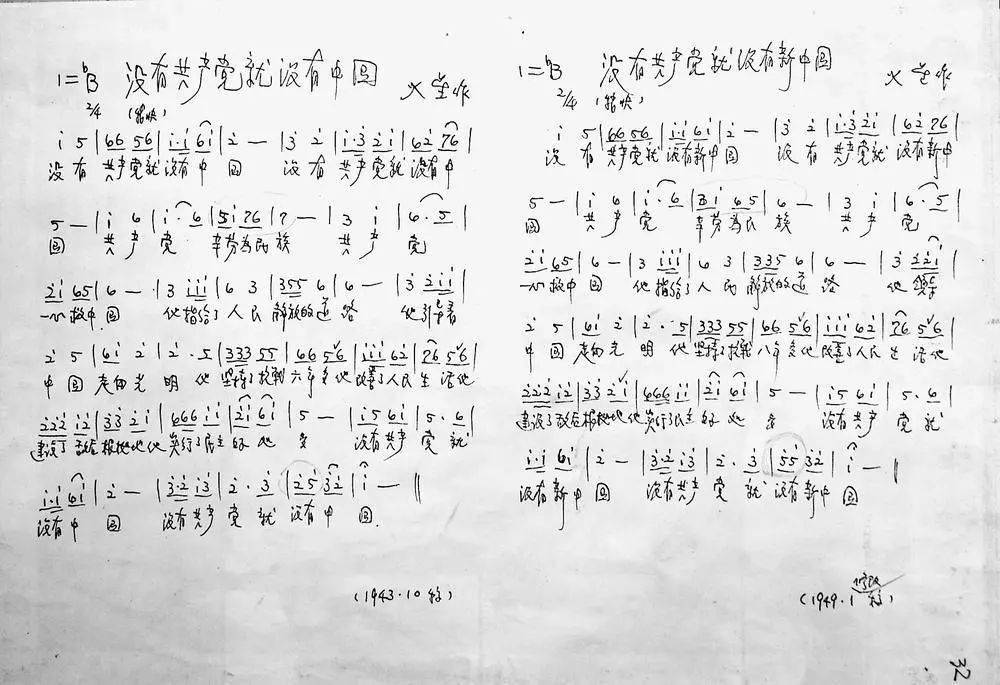 1=♭B 没有共产党就没有中国
2/4 (稍快) 火星作
i 5 | 66 56 | i·i 6i | 2 — | 3 2 | i·3 2i | 62 76 |
没有 共产党就 没有中 国 没有 共产党就 没有中
5 — | i 6 | i·6 | 5i 76 | 7 — | 3 i | 6·5 |
国 共产党 辛劳为民族 共产党
2i 65 | 6 — | 3 iii | 6 3 | 355 6 | 6 — | 3 2ii |
一心救中国 他指给了人民 解放的道路 他引导着
2 5 | 6i 2 | 2·5 | 333 55 | 66 56 | iii 62 | 76 56 |
中国走向光明 他坚持了抗战六年多他改善了人民生活他
222 i2 | 33 2i | 666 ii | 2i 6i | 5 — | i5 6i | 5·6 |
建设了敌后根据地他实行了民主好处多 没有共产党就
i·i 6i | 2 — | 3·2 i3 | 2·3 | 25 32 | i — ‖
没有中国 没有共产党就没有中国.
(1943.10 稿)
1=♭B 没有共产党就没有新中国
2/4 (稍快) 火星作
i 5 | 66 56 | i·i 6i | 2 — | 3 2 | i·3 2i | 62 76 |
没有共产党就没有新中国 没有共产党就没有新中
5 — | i 6 | i·6 | 3i 65 | 6 — | 3 i | 6·5 |
国 共产党 辛劳为民族 共产党
2i 65 | 6 — | 3 iii | 6 3 | 335 6 | 6 — | 3 22i |
一心救中国 他指给了人民解放的道路 他领导
2 5 | 6i 2 | 2·5 | 333 55 | 66 56 | iii 62 | 76 56 |
中国走向光明 他坚持了抗战八年多他改善了人民生活他
222 i2 | 33 2i | 666 ii | 2i 6i | 5 — | i5 6i | 5·6 |
建设了敌后根据地他实行了民主好处多 没有共产党就
i·i 6i | 2 — | 3·2 i3 | 2·3 | 55 32 | i — ‖
没有新中国 没有共产党就没有新中国
修改
(1949.1 稿)
32